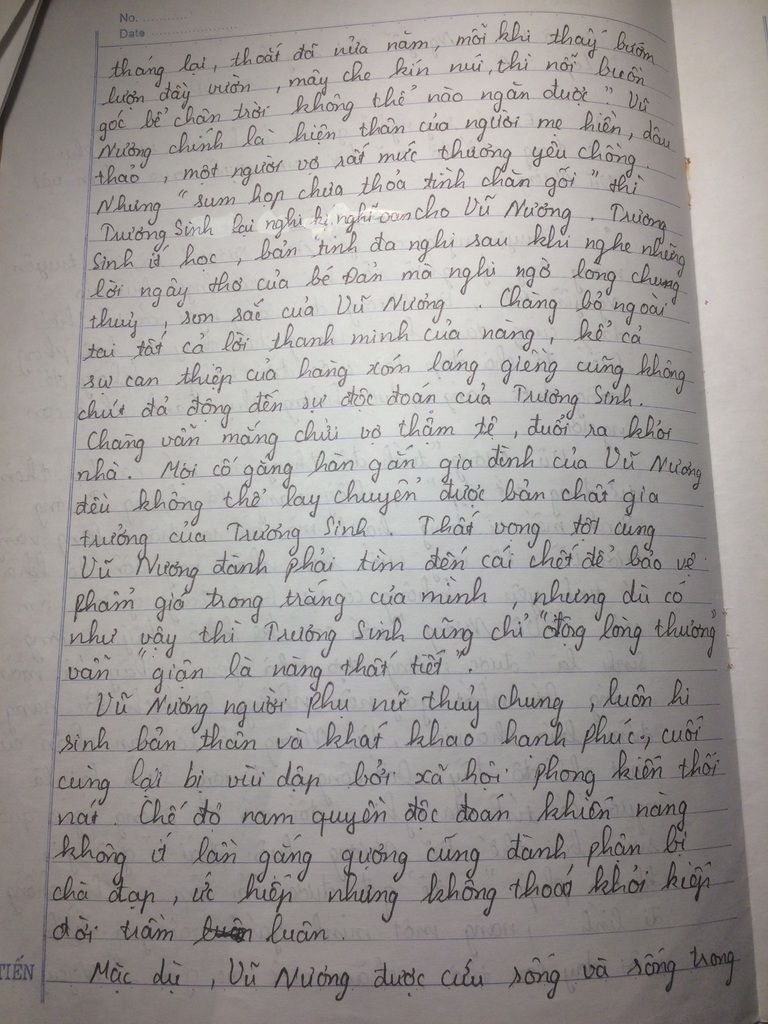 No. ............
Date ............
tháng lại, thoắt đã nửa năm, mỗi khi thấy bướm
lượn đầy vườn, mây che kín núi, thì nỗi buồn
góc bể chân trời không thể nào ngăn được". Vũ
Nương chính là hiện thân của người mẹ hiền, dâu
thảo, một người vợ rất mực thương yêu chồng.
Nhưng "sum họp chưa thỏa tình chăn gối" thì
Trương Sinh lại nghi kị nghi oan cho Vũ Nương. Trương
Sinh ít học, bản tính đa nghi sau khi nghe những
lời ngây thơ của bé Đản mà nghi ngờ lòng chung
thuỷ, son sắc của Vũ Nương. Chàng bỏ ngoài
tai tất cả lời thanh minh của nàng, kể cả
sự can thiệp của hàng xóm láng giềng cũng không
chút đả động đến sự độc đoán của Trương Sinh.
Chàng vẫn mắng chửi vợ thậm tệ, đuổi ra khỏi
nhà. Mọi cố gắng hàn gắn gia đình của Vũ Nương
đều không thể lay chuyển được bản chất gia
trưởng của Trương Sinh. Thất vọng tột cùng
Vũ Nương đành phải tìm đến cái chết để bảo vệ
phẩm giá trong trắng của mình, nhưng dù có
như vậy thì Trương Sinh cũng chỉ "động lòng thương"
vẫn "giận là nàng thất tiết".
Vũ Nương người phụ nữ thuỷ chung, luôn hi
sinh bản thân và khát khao hạnh phúc, cuối
cùng lại bị vùi dập bởi xã hội phong kiến thối
nát. Chế độ nam quyền độc đoán khiến nàng
không ít lần gắng gượng cũng đành phận bị
chà đạp, ức hiếp nhưng không thoát khỏi kiếp
đời trầm luân.
TIẾN
Mặc dù, Vũ Nương được cứu sống và sống trong